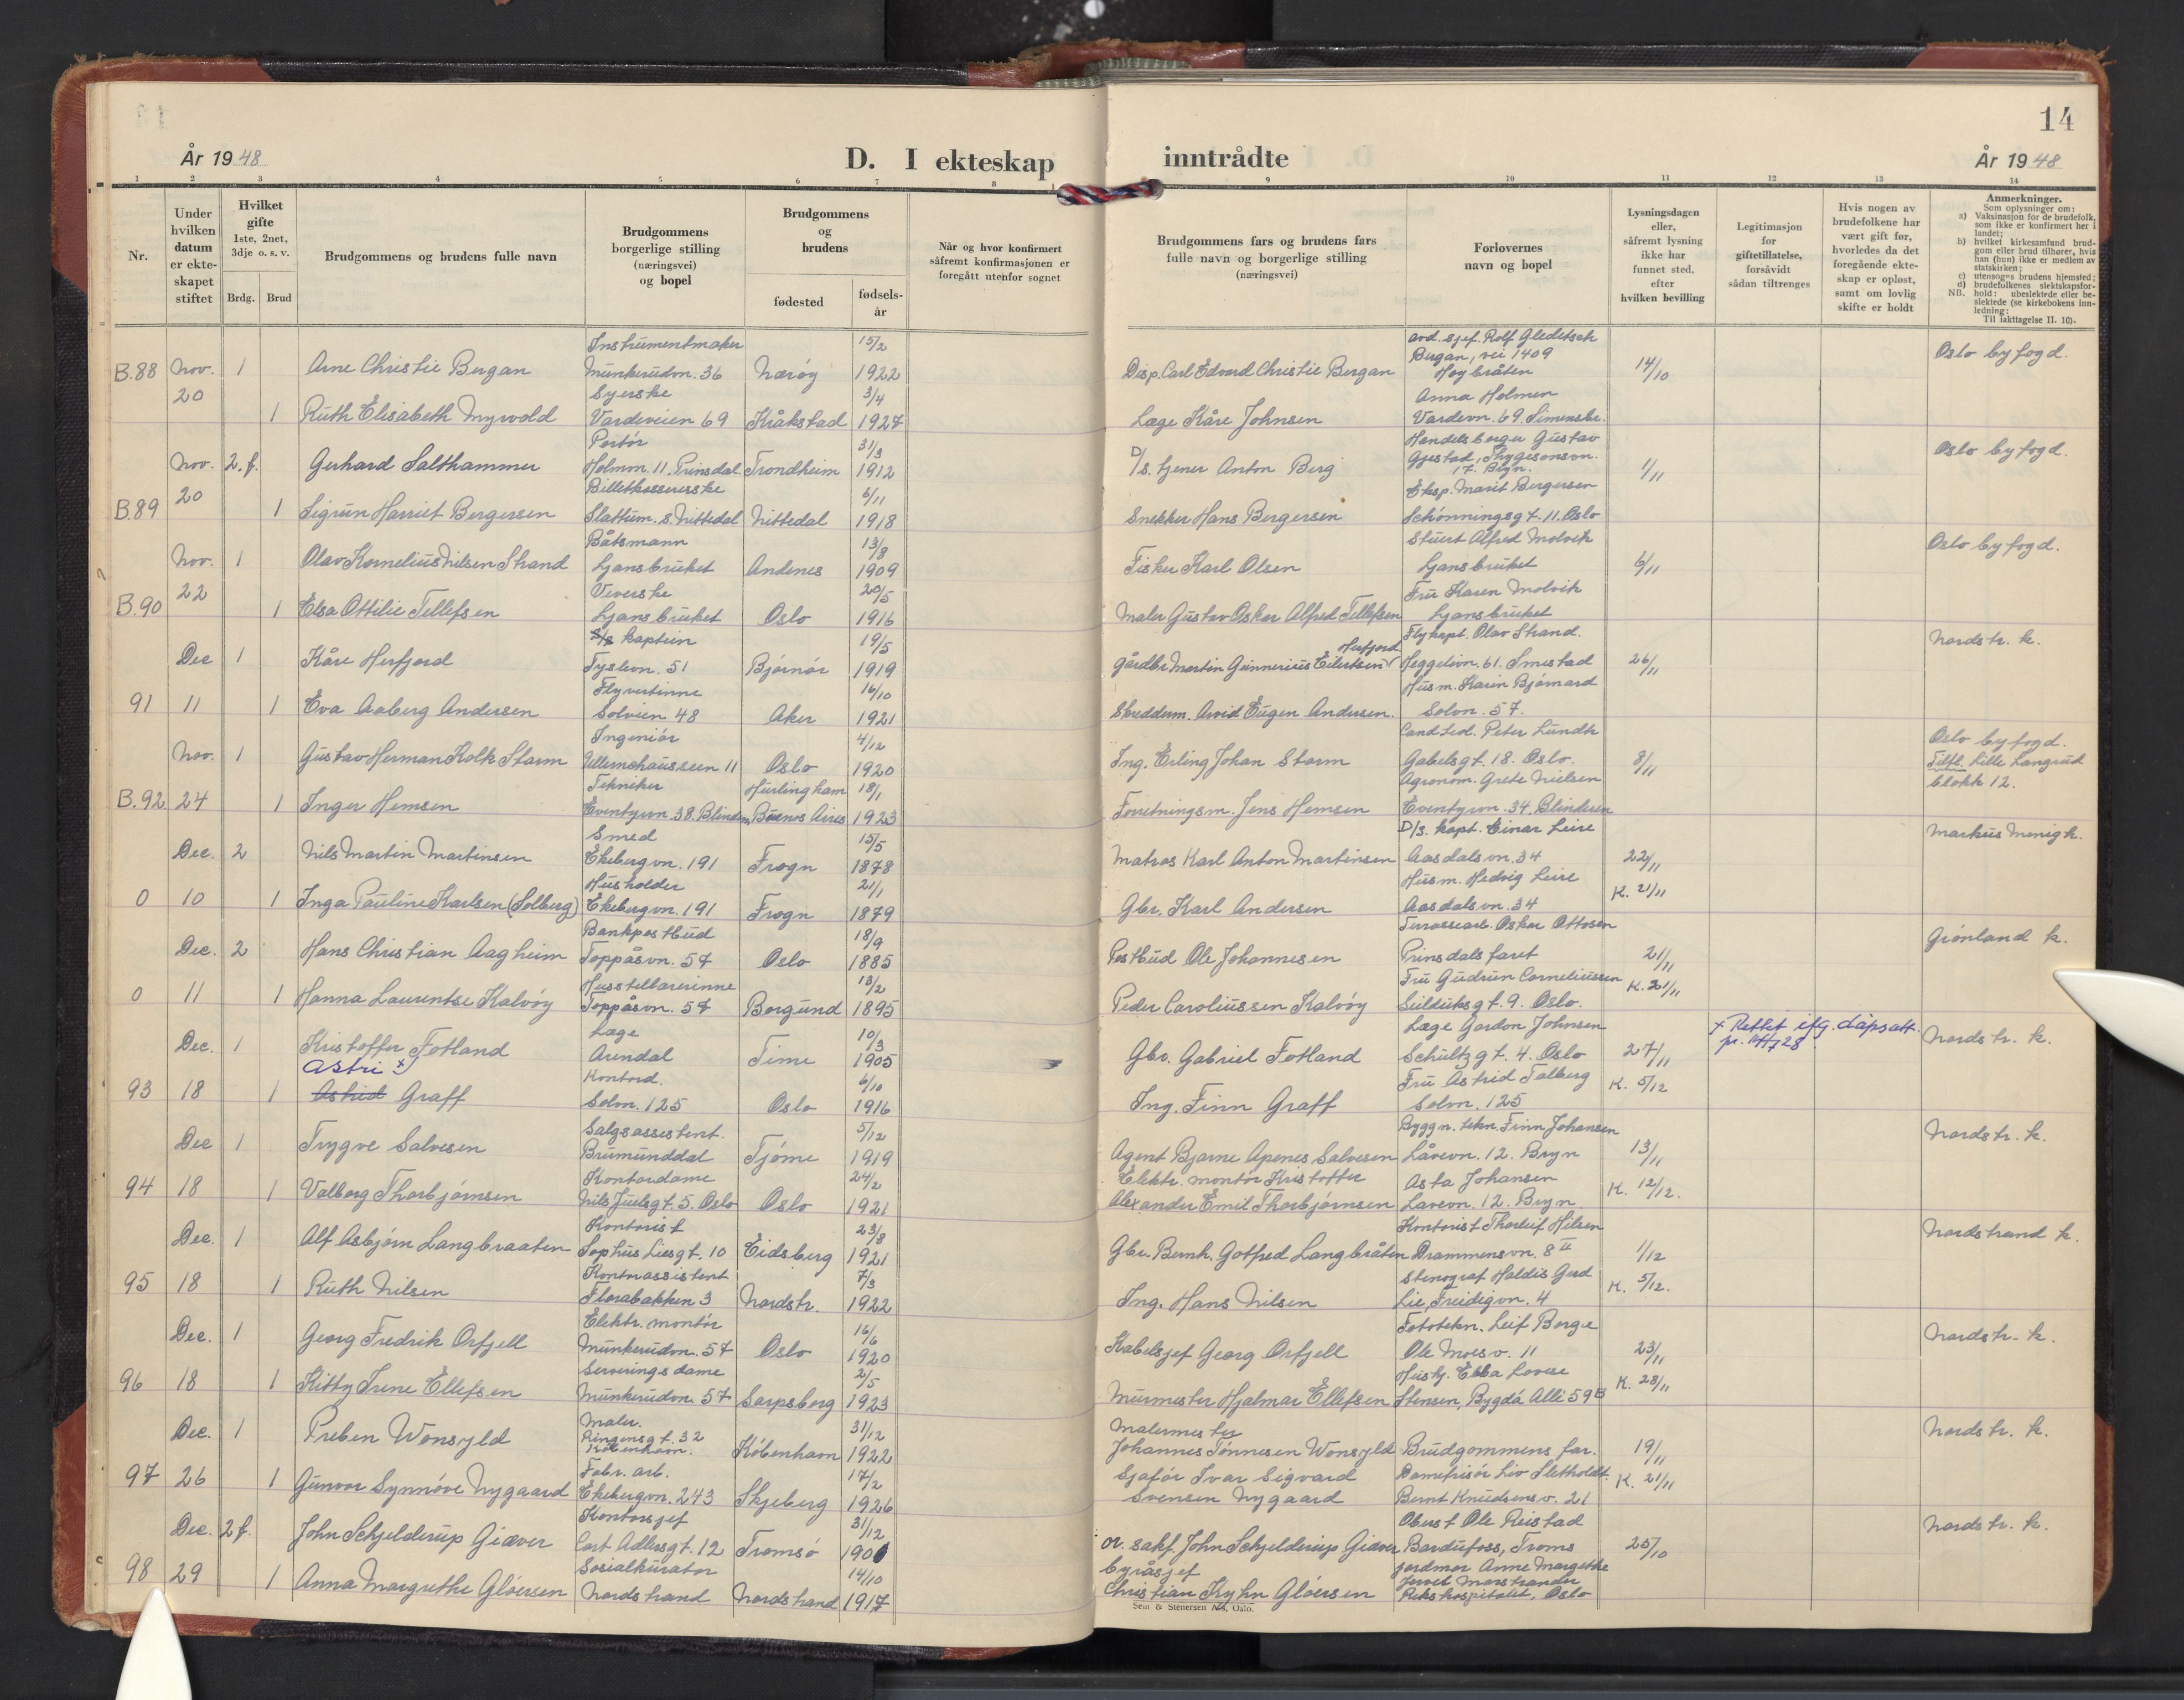 14
År 1948
D. I ekteskap
inntrådte
År 1948
1 2 3 4 5 6 7 8 9 10 11 12 13 14
Nr.
Under hvilken datum er ekte-skapet stiftet
Hvilket gifte
1ste, 2net, 3dje o. s. v.
Brdg. Brud
Brudgommens og brudens fulle navn
Brudgommens
borgerlige stilling
(næringsvei)
og bopel
Brudgommens
og
brudens
fødested
fødsels-
år
Når og hvor konfirmert
såfremt konfirmasjonen er
foregått utenfor sognet
Brudgommens fars og brudens fars
fulle navn og borgerlige stilling
(næringsvei)
Forlovernes
navn og bopel
Lysningsdagen
eller,
såfremt lysning
ikke har
funnet sted,
efter
hvilken bevilling
Legitimasjon
for
giftetillatelse,
forsåvidt
sådan tiltrenges
Hvis nogen av
brudefolkene har
vært gift før,
hvorledes da det
foregående ekte-
skap er opløst,
samt om lovlig
skifte er holdt
Anmerkninger.
Som oplysninger om:
a) Vaksinasjon for de brudefolk,
som ikke er konfirmert her i
landet;
b) hvilket kirkesamfund brud-
gom eller brud tilhører, hvis
han (hun) ikke er medlem av
statskirken;
c) utensogns brudens hjemsted;
d) brudefolkenes slektskapsfor-
NB. hold: ubeslektede eller be-
slektede (se kirkebokens inn-
ledning:
Til iakttagelse II. 10).
B.88 Nov. 20 1 Arne Christie Bergan Instrumentmaker Munkerudvn. 36 Nærøy 15/2 1922 Disp. Carl Edvard Christie Bergan avd. sjef. Rolf Gleditsch Bergan, vei 1409 Høybråten 14/10 Oslo byfogd.
1 Ruth Elisabeth Myrvold Syerske Vardeveien 69 Kråkstad 3/4 1927 Læge Kåre Johnsen Anna Holmen Vardevn. 69 Simensbr.
B.89 Nov. 20 2.f. Gerhard Salthammer Portør Holmvn. 11. Prinsdal Trondheim 31/3 1912 D/s. tjener Anton Berg Handelsborger Gustav Gjestad, Thygesonsvn. 17. Bryn. 1/11 Oslo byfogd.
1 Sigrun Harriet Bergersen Billetkassererske Slattum. S. Nittedal Nittedal 6/11 1918 Snekker Hans Bergersen Eksp. Marit Bergersen Schönningsgt. 11. Oslo
B.90 Nov. 22 1 Olav Kornelius Nilsen Strand Båtsmann Ljansbruket Andenes 13/8 1909 Fisker Karl Olsen Stuert Alfred Molvik Ljansbruket 6/11 Oslo byfogd.
1 Elsa Ottilie Tellefsen Veverske Ljansbruket Oslo 20/5 1916 Maler Gustav Oskar Alfred Tellefsen Fru Karen Molvik Ljansbruket
91 Dec 11 1 Kåre Herfjord kaptein Tyslevn. 51 Bjørnør 19/5 1919 Gårdbr Martin Gunnerius Eilertsen Herfjord Flykapt. Olav Strand. Heggelivn. 61. Smestad 26/11 Nordstr. k.
1 Eva Aaberg Andersen Flyvertinne Solveien 48 Aker 16/10 1921 Skreddem. Arvid Eugen Andersen. Husm. Karin Bjørnard Solvn. 57.
B.92 Nov. 24 1 Gustav Herman Kolk Starm Ingeniør Ullernchausseen 11 Oslo 4/12 1920 Ing. Erling Johan Starm Cand.ed. Peter Lundh Gabelsgt. 18. Oslo. 8/11 Oslo byfogd. Tilfl. Lille Langrud blokk 12.
1 Inger Hemsen Tekniker Eventyrvn. 38. Blindern Hurlingham Buenos Aires 18/1 1923 Forretningsm. Jens Hemsen Agronom. Grete Nielsen Eventyrvn. 34 Blindern
0 Dec. 10 2 Nils Martin Martinsen Smed Ekebergvn. 191 Frogn 15/5 1878 Matros Karl Anton Martinsen D/s. kapt. Einar Leire Aasdalsvn. 34 22/11 Markus menigh.
1 Inga Pauline Karlsen (Solberg) Husholder Ekebergvn. 191 Frogn 21/1 1879 Gbr. Karl Andersen Husm. Hedvig Leire Aasdalsvn. 34 K. 21/11
0 Dec. 11 2 Hans Christian Aagheim Bankpostbud Toppåsvn. 57 Oslo 18/9 1885 Postbud Ole Johannesen Terassearb. Oskar Ottosen Prinsdalsfaret 21/11 Grønland k.
1 Hanna Laurentse Kalvöy Husstellærerinne Toppåsvn. 57 Borgund 13/2 1895 Peder Caroliussen Kalvöy Fru Gudrun Corneliussen Seilduksgt. 9. Oslo. K. 21/11
93 Dec. 18 1 Kristoffer Fotland Læge Arendal Time 10/3 1905 Gbr. Gabriel Fotland Læge Gordon Johnsen Schultzgt. 4. Oslo 27/11 x Rettet ifg. dåpsatt. Nordstr. k.
1 Astri x) Astrid Graff Kontord. Solvn. 125 Oslo 6/10 1916 Ing. Finn Graff Fru Astrid Talberg Solvn. 125 K. 5/12
94 Dec 18 1 Trygve Salvesen Salgsassistent. Brumunddal Tjøme 5/12 1919 Agent Bjarne Apenes Salvesen Byggn. tekn. Finn Johansen Låvevn. 12. Bryn 13/11 Nordstr. k.
1 Valborg Thorbjørnsen Kontordame Nils Juelsgt. 5. Oslo Oslo 24/2 1921 Elektr. montør Kristoffer Alexander Emil Thorbjørnsen Asta Johansen Lavevn. 12. Bryn K. 12/12.
95 Dec. 18 1 Alf Asbjørn Langbraaten Kontorist Sophus Liesgt. 10 Eidsberg 23/8 1921 Gbr. Bernh. Gotfred Langbråten Kontorist Thorleif Nilsen Drammensvn. 8 II 1/12 Nordstrand k.
1 Ruth Nilsen Kontorassistent Florabakken 3 Nordstr. 7/3 1922 Ing. Hans Nilsen Stenograf Haldis Gerd Lie, Freidigvn. 4 K. 5/12.
96 Dec. 18 1 Georg Fredrik Orfjell Elektr. montör Munkerudvn. 57 Oslo 16/6 1920 Kabelsjef Georg Orfjell Fototekn. Leif Borge Ole Moesv. 11 23/11 Nordstr. k.
1 Kitty Irene Ellefsen Serveringsdame Munkerudvn. 57 Sarpsborg 2/5 1923 Murmester Hjalmar Ellefsen Husfr. Ebba Lovise Stensen, Bygdö Allé 59B K. 28/11
97 Dec. 26 1 Preben Wonsyld Maler. Ringensgt. 32 København. København 31/12 1922 Malermester Johannes Tönnesen Wonsyld Brudgommens far. 19/11 Nordstr. k.
1 Gunvor Synnöve Nygaard Fabr. arb. Ekebergvn. 243 Skjeberg 17/2 1926 Sjåför Ivar Sigvard Svensen Nygaard Damefrisör Liv Sletholdt. Bernt Knudsensv. 21 K. 21/11
98 Dec. 29 2 f. John Schjelderup Giæver Kontorsjef Cort Adlersgt. 12 Tromsö 31/12 1901 or. sakf. John Schjelderup Giæver Oberst Ole Reistad Bardufoss, Troms 25/10 Nordstr. k.
1 Anna Margrethe Glöersen Sosialkurator Nordstrand Nordstrand 14/10 1917 byråsjef Christian Kyhn Glöersen jordmor Anne Margrethe Juvet Marstrander Rikshospitalet, Oslo
Sem & Stenersen A/S, Oslo.